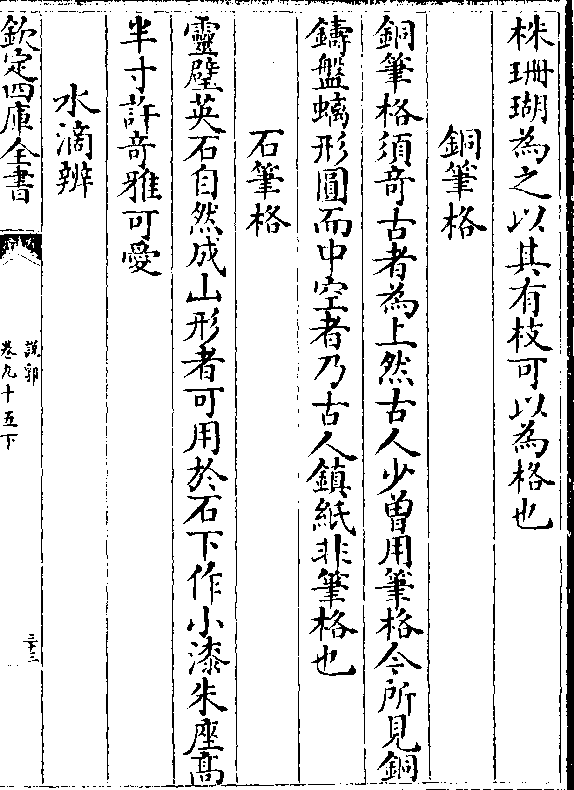 株珊瑚為之以其有枝可以為格也
銅筆格
銅筆格須奇古者為上然古人少曽用筆格今所見銅
鑄盤螭形圓而中空者乃古人鎮紙非筆格也
石筆格
靈壁英石自然成山形者可用於石下作小漆朱座髙
半寸許奇雅可愛
水滴辨
欽定四庫全書
說郛
卷九十五下
三十三